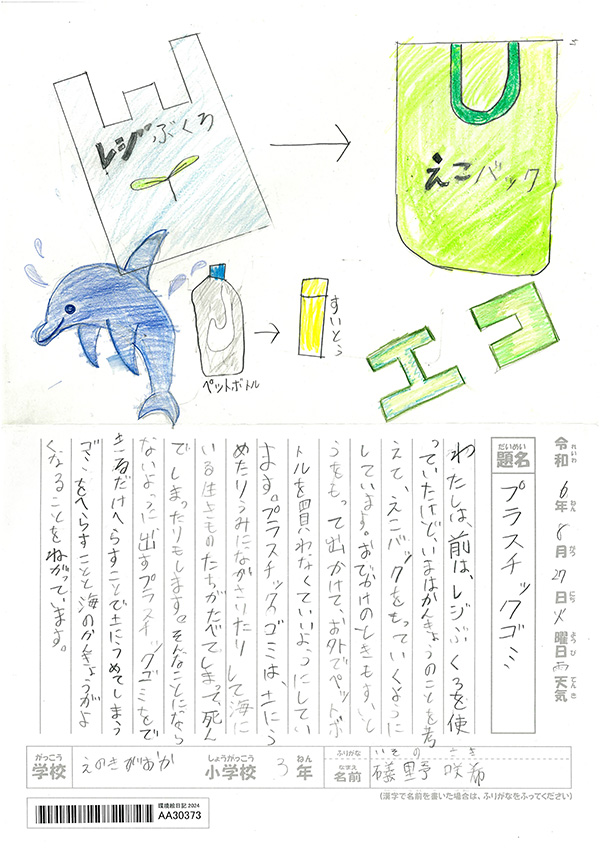 レジぶくろ
えこバック
ペットボトル
すいとう
エコ
令和6年8月27日火曜日雨天気
れいわ ねん がつ にち よう び てんき
だいめい
題名
プラスチックゴミ
わたしは、前は、レジぶくろを使
っていたけど、いまはかんきょうのことを考
えて、えこバックをもっていくように
しています。おでかけのときもすいと
うをもって出かけて、お外でペットボ
トルを買わなくていいようにしてい
ます。プラスチックのゴミは、土にう
めたりうみにながさりたりして海に
いる生きものたちがたべてしまって、死ん
でしまったりもします。そんなことになら
ないように出すプラスチックゴミをで
きるだけへらすことで土にうめてしまう
ゴミをへらすことと海のかんきょうがよ
くなることをねがっています。
がっこう
学校
えのきがおか
しょうがっこう
小学校
3
ねん
年
ふりがな
いその さき
なまえ
名前
礒野 咲希
(漢字で名前を書いた場合は、ふりがなをふってください)
環境絵日記2024
AA30373